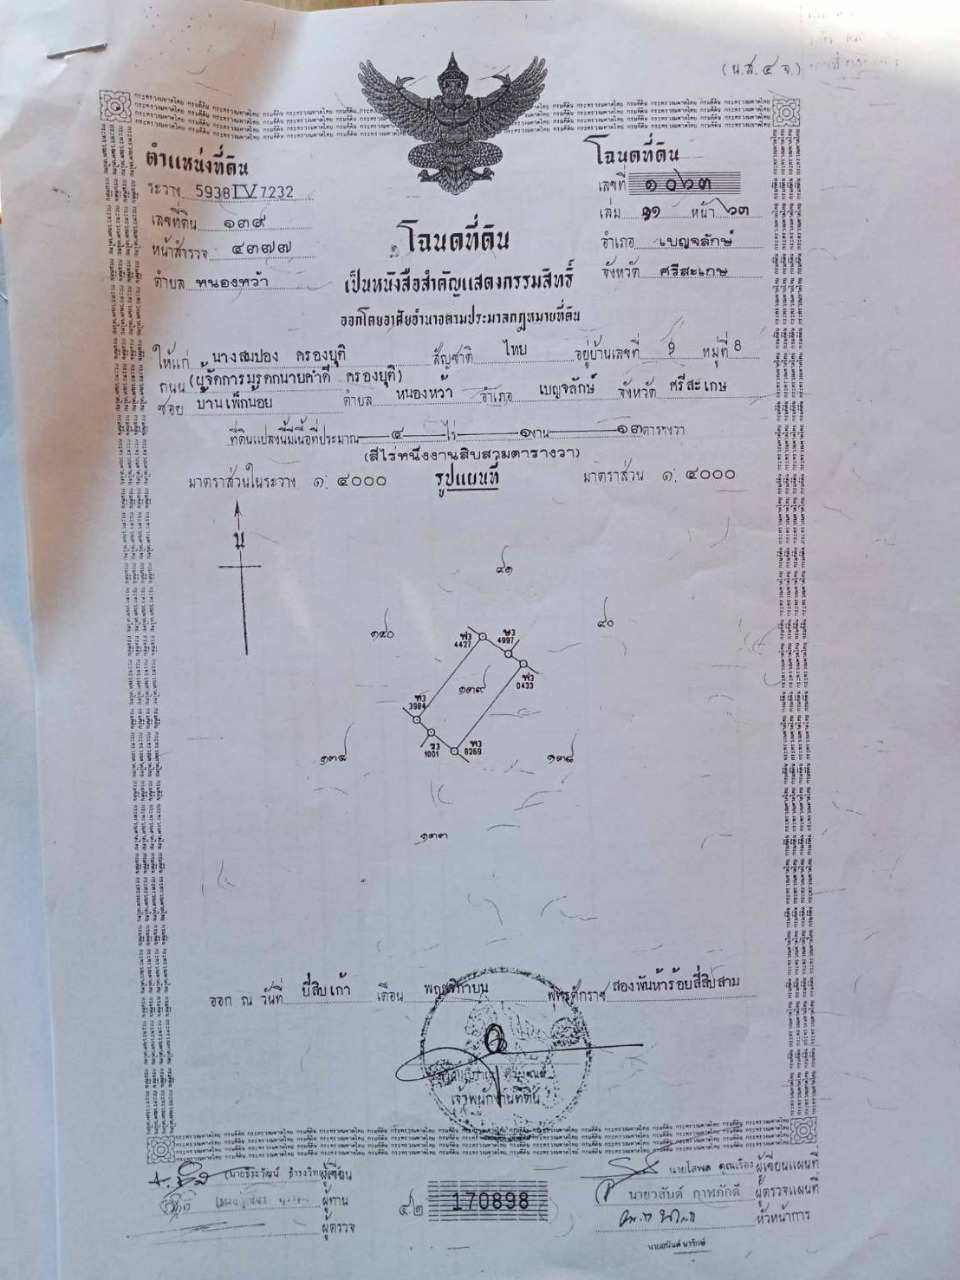 (น.ส. ๔ จ.)
ตำแหน่งที่ดิน
ระวาง 5938 IV 7232
เลขที่ดิน ๑๓๙
หน้าสำรวจ ๔๓๗๗
ตำบล หนองหว้า
โฉนดที่ดิน
เลขที่ ๑๐๖๓
เล่ม ๑๑ หน้า ๖๓
อำเภอ เบญจลักษ์
จังหวัด ศรีสะเกษ
โฉนดที่ดิน
เป็นหนังสือสำคัญแสดงกรรมสิทธิ์
ออกโดยอาศัยอำนาจตามประมวลกฎหมายที่ดิน
ให้แก่ นางสมปอง ครองยุติ สัญชาติ ไทย อยู่บ้านเลขที่ 9 หมู่ที่ 8
ถนน (ผู้จัดการมรดกนายคำดี ครองยุติ)
ซอย บ้านเพ็กน้อย ตำบล หนองหว้า อำเภอ เบญจลักษ์ จังหวัด ศรีสะเกษ
ที่ดินแปลงนี้มีเนื้อที่ประมาณ ๔ ไร่ ๑ งาน ๑๓ ตารางวา
(สี่ไร่หนึ่งงานสิบสามตารางวา)
มาตราส่วนในระวาง ๑ : ๔๐๐๐ รูปแผนที่ มาตราส่วน ๑ : ๔๐๐๐
น
๔๑
๑๔๐
๔๐
4427
4997
0433
๑๓๙
3984
1001
8269
๑๓๔
๑๓๘
๑๓๓
ออก ณ วันที่ ยี่สิบเก้า เดือน พฤศจิกายน พุทธศักราช สองพันห้าร้อยสี่สิบสาม
เจ้าพนักงานที่ดิน
ผู้เขียน
ผู้ทาน
ผู้ตรวจ
๔๒ 170898
นายโสพล คูณเรือง ผู้เขียนแผนที่
นายวสันต์ ภาพภักดี ผู้ตรวจแผนที่
หัวหน้าการ
นายอนันต์ นารักษ์